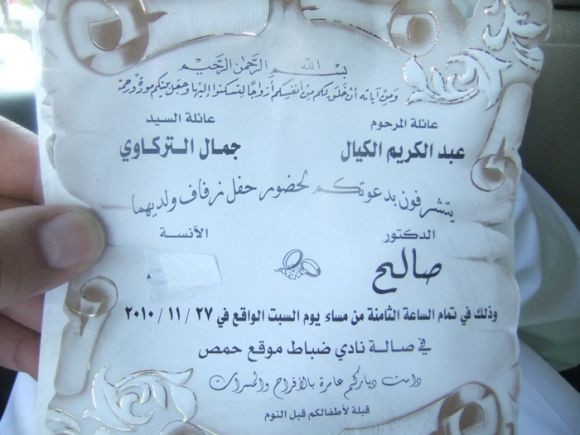 بسم الله الرحمن الرحيم
ومن آياته أن خلق لكم من أنفسكم أزواجا لتسكنوا إليها وجعل بينكم مودة ورحمة
عائلة المرحوم
عبد الكريم الكيال
عائلة السيد
جمال التركاوي
يتشرفون بدعوتكم لحضور حفل زفاف ولديهما
الدكتور
صالح
الآنسة
وذلك في تمام الساعة الثامنة من مساء يوم السبت الواقع في ٢٧ / ١١ / ٢٠١٠
في صالة نادي ضباط موقع حمص
دامت دياركم عامرة بالأفراح والمسرات
قبلة لأطفالكم قبل النوم